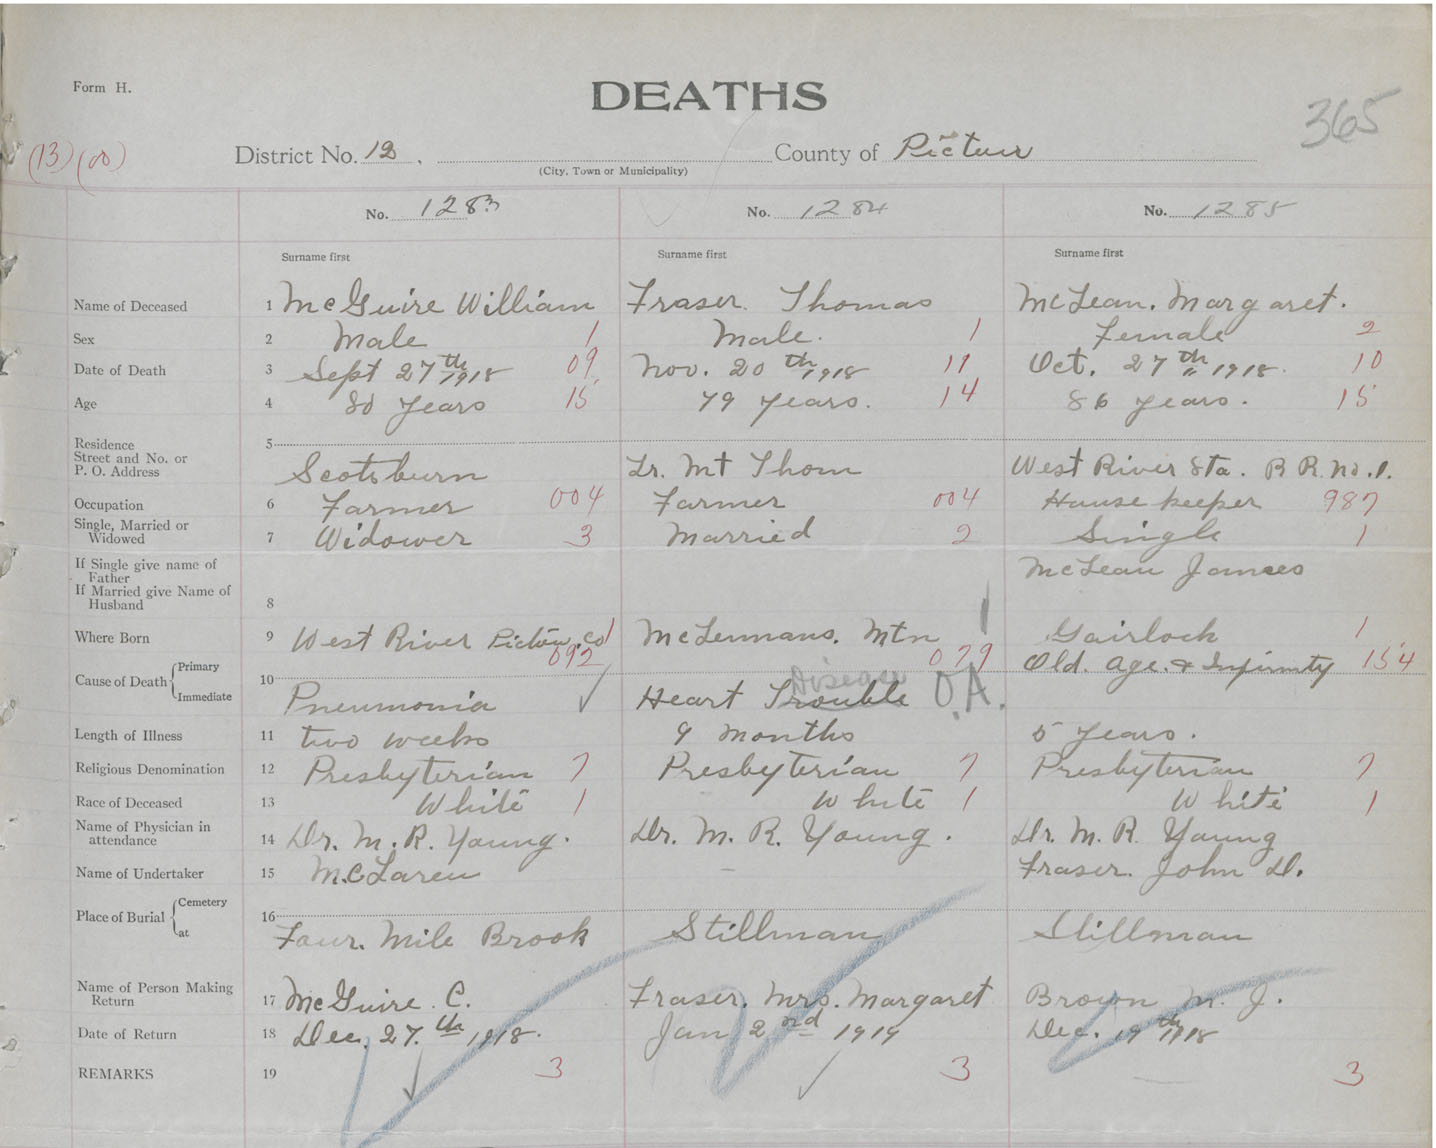 Form H.
DEATHS
365
(13) (00)
District No. 12, County of Pictou
(City, Town or Municipality)
No. 1283 No. 1284 No. 1285
Surname first Surname first Surname first
Name of Deceased 1 McGuire William Fraser. Thomas McLean. Margaret.
Sex 2 Male 1 Male. 1 Female 2
Date of Death 3 Sept 27th 1918 09 Nov. 20th 1918 11 Oct. 27th 1918. 10
Age 4 80 years 15 79 years. 14 86 years. 15
Residence 5
Street and No. or
P. O. Address Scotsburn Lr. Mt Thom West River Sta. R R. No. 1.
Occupation 6 Farmer 004 Farmer 004 House keeper 987
Single, Married or
Widowed 7 Widower 3 Married 2 Single 1
If Single give name of
Father McLean James
If Married give Name of
Husband 8
Where Born 9 West River Pictou Co 1 McLennans. Mtn 1 Gairloch 1
092 079 Old. age. & Infirmity 154
Cause of Death Primary 10 Disease
Immediate Pneumonia Heart Trouble O.A.
Length of Illness 11 two weeks 9 months 5 years.
Religious Denomination 12 Presbyterian 7 Presbyterian 7 Presbyterian 7
Race of Deceased 13 White 1 White 1 White 1
Name of Physician in
attendance 14 Dr. M. R. Young. Dr. M. R. Young. Dr. M. R. Young
Name of Undertaker 15 McLaren Fraser. John D.
Place of Burial Cemetery 16
at Four. Mile Brook Stillman Stillman
Name of Person Making
Return 17 McGuire. C. Fraser. Mrs. Margaret Brown M. J.
Date of Return 18 Dec. 27.th 1918. Jan 2nd 1919 Dec. 19th 1918
REMARKS 19 3 3 3